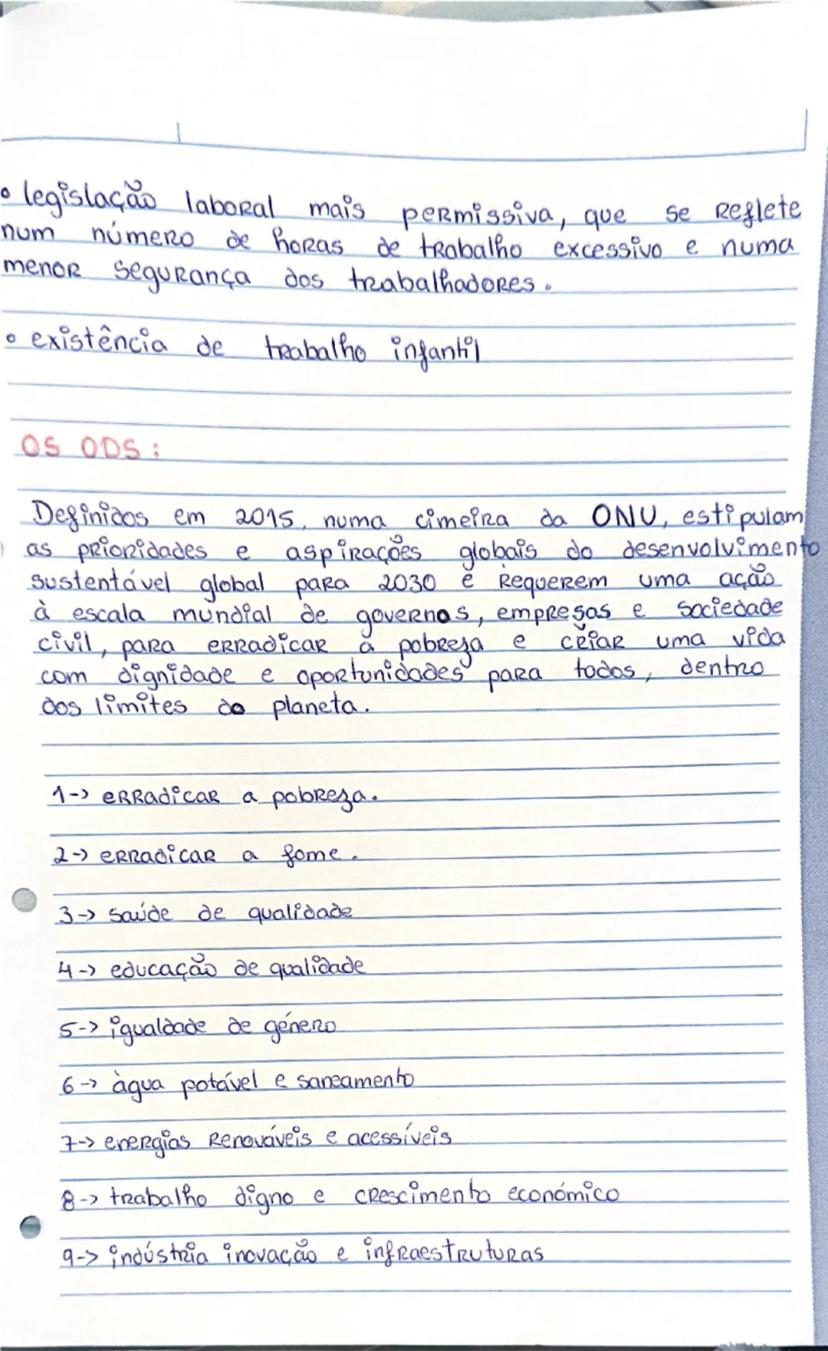 • legislação laboral mais permissiva, que se reflete
num número de horas de trabalho excessivo e numa
menor segurança dos trabalhadores.
• existência de trabalho infantil
OS ODS:
Definidos em 2015, numa cimeira da ONU, estipulam
as prioridades e aspirações globais do desenvolvimento
sustentável global para 2030 e requerem uma ação
à escala mundial de governos, empresas e sociedade
civil, para erradicar a pobreza e criar uma vida
com dignidade e oportunidades para todos, dentro
dos limites do planeta.
1-> erradicar a pobreza.
2-> erradicar a fome.
3-> saúde de qualidade
4-> educação de qualidade
5-> igualdade de género
6-> àgua potável e saneamento
7-> energias renováveis e acessíveis
8-> trabalho digno e crescimento económico
9-> indústria inovação e infraestruturas